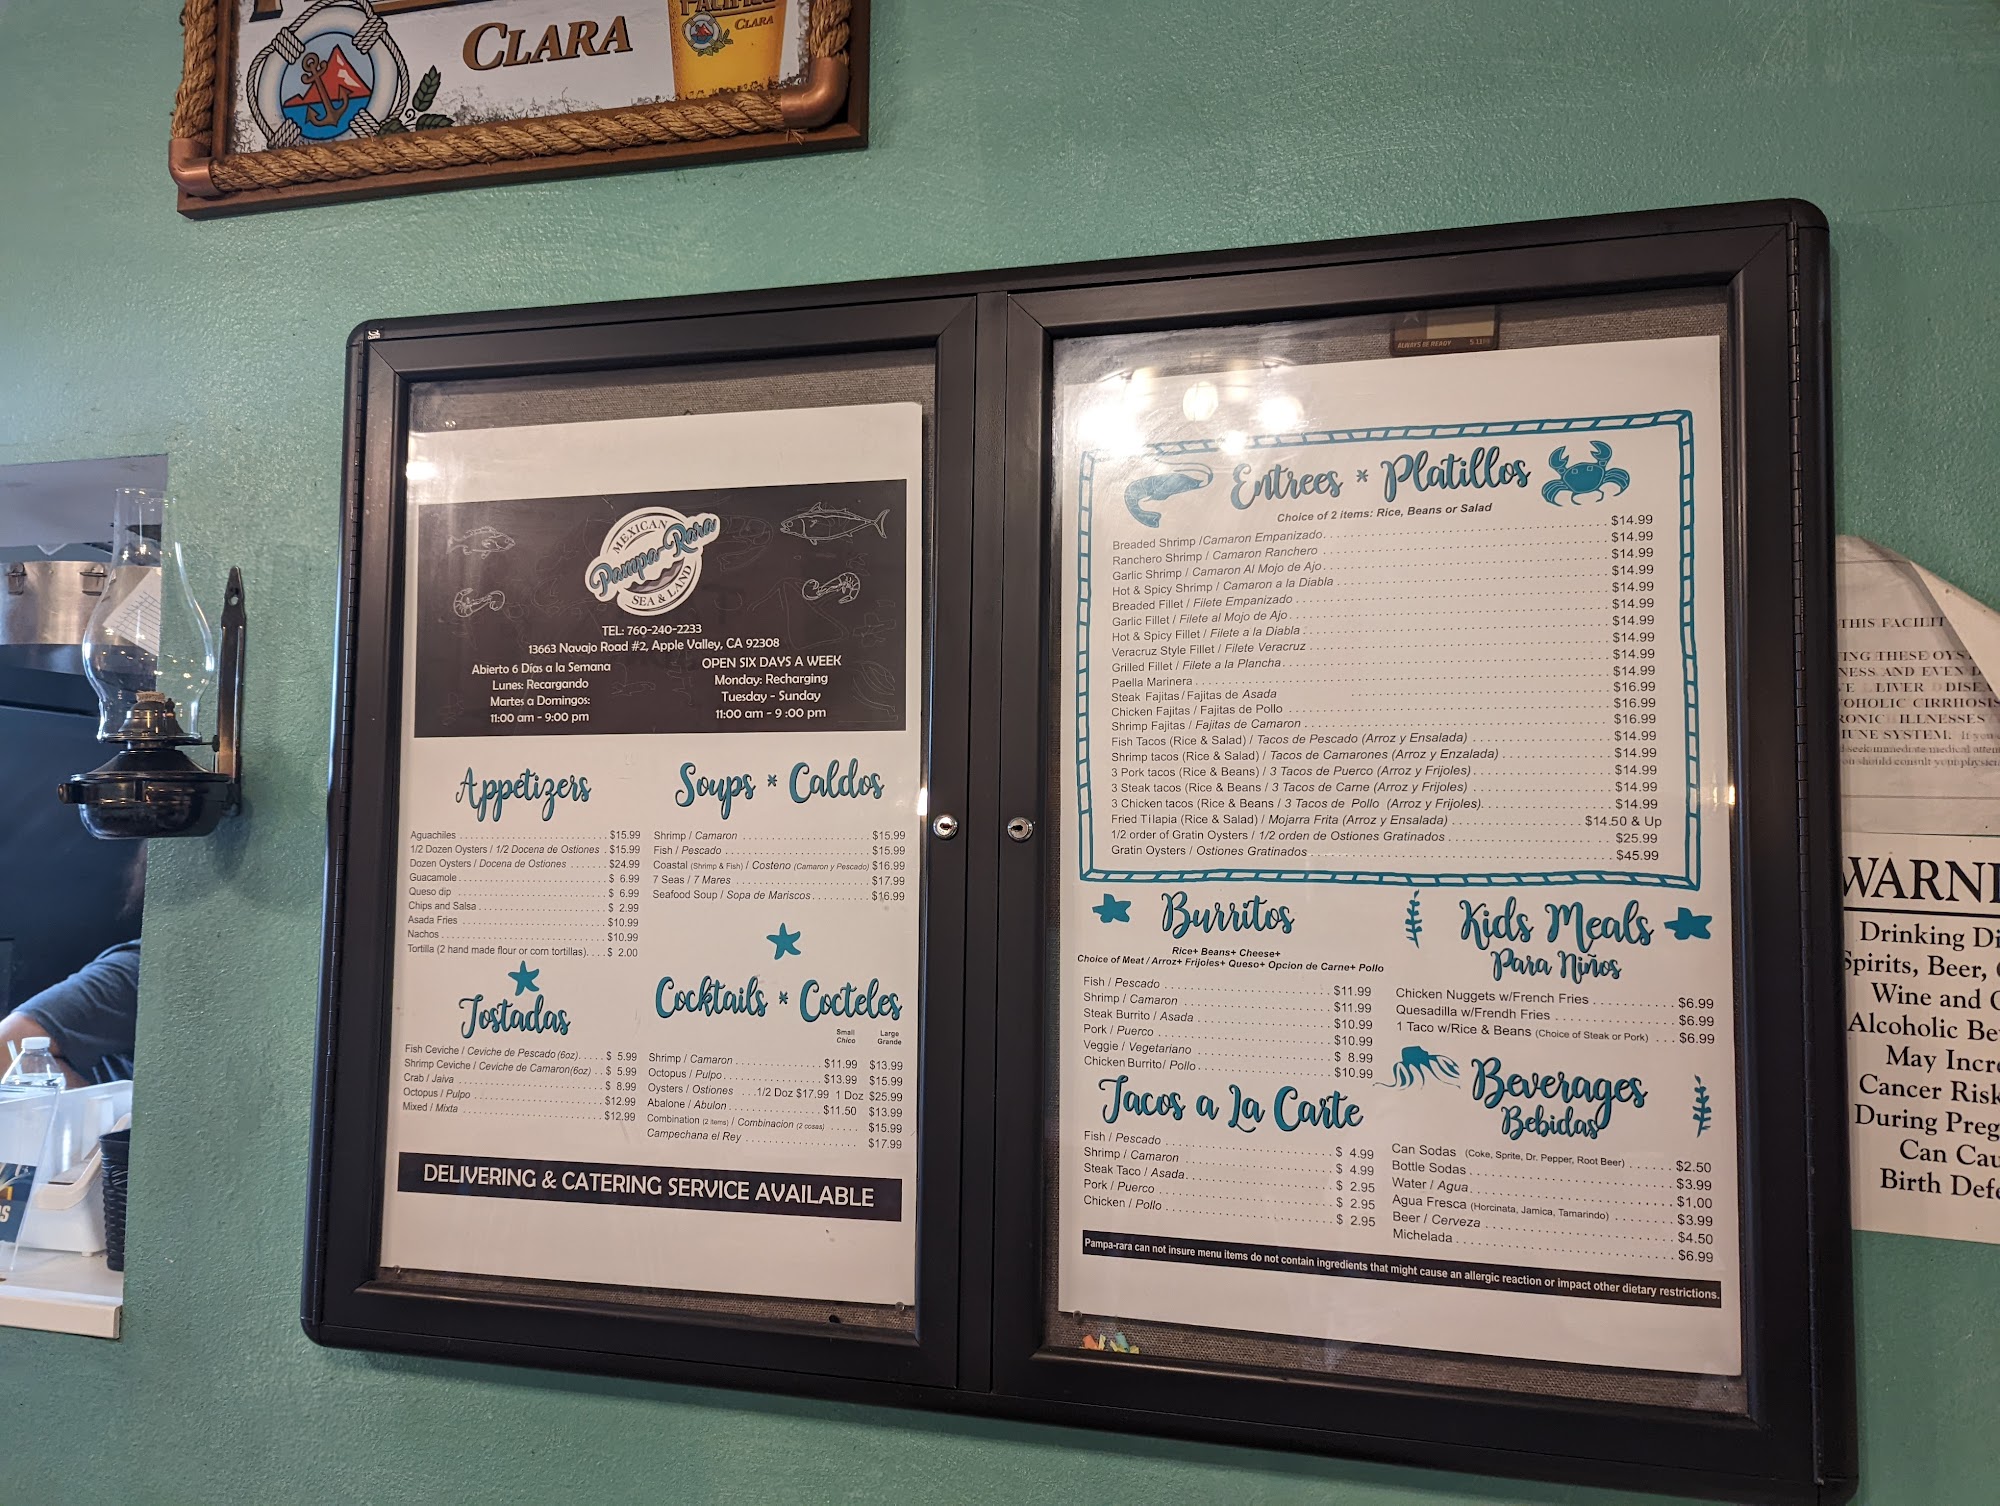 CLARA
CLARA
ALWAYS BE READY 5.11
MEXICAN
Pampa-Rara
SEA & LAND
TEL: 760-240-2233
13663 Navajo Road #2, Apple Valley, CA 92308
Abierto 6 Días a la Semana
Lunes: Recargando
Martes a Domingos:
11:00 am - 9:00 pm
OPEN SIX DAYS A WEEK
Monday: Recharging
Tuesday - Sunday
11:00 am - 9 :00 pm
Appetizers
Aguachiles $15.99
1/2 Dozen Oysters / 1/2 Docena de Ostiones $15.99
Dozen Oysters / Docena de Ostiones $24.99
Guacamole $ 6.99
Queso dip $ 6.99
Chips and Salsa $ 2.99
Asada Fries $10.99
Nachos $10.99
Tortilla (2 hand made flour or corn tortillas) $ 2.00
Tostadas
Fish Ceviche / Ceviche de Pescado (6oz) $ 5.99
Shrimp Ceviche / Ceviche de Camaron(6oz) $ 5.99
Crab / Jaiva $ 8.99
Octopus / Pulpo $12.99
Mixed / Mixta $12.99
Soups * Caldos
Shrimp / Camaron $15.99
Fish / Pescado $15.99
Coastal (Shrimp & Fish) / Costeno (Camaron y Pescado) $16.99
7 Seas / 7 Mares $17.99
Seafood Soup / Sopa de Mariscos $16.99
Cocktails * Cocteles
Small Large
Chico Grande
Shrimp / Camaron $11.99 $13.99
Octopus / Pulpo $13.99 $15.99
Oysters / Ostiones 1/2 Doz $17.99 1 Doz $25.99
Abalone / Abulon $11.50 $13.99
Combination (2 items) / Combinacion (2 cosas) $15.99
Campechana el Rey $17.99
DELIVERING & CATERING SERVICE AVAILABLE
Entrees * Platillos
Choice of 2 items: Rice, Beans or Salad
Breaded Shrimp /Camaron Empanizado $14.99
Ranchero Shrimp / Camaron Ranchero $14.99
Garlic Shrimp / Camaron Al Mojo de Ajo $14.99
Hot & Spicy Shrimp / Camaron a la Diabla $14.99
Breaded Fillet / Filete Empanizado $14.99
Garlic Fillet / Filete al Mojo de Ajo $14.99
Hot & Spicy Fillet / Filete a la Diabla $14.99
Veracruz Style Fillet / Filete Veracruz $14.99
Grilled Fillet / Filete a la Plancha $14.99
Paella Marinera $14.99
Steak Fajitas / Fajitas de Asada $16.99
Chicken Fajitas / Fajitas de Pollo $16.99
Shrimp Fajitas / Fajitas de Camaron $16.99
Fish Tacos (Rice & Salad) / Tacos de Pescado (Arroz y Ensalada) $14.99
Shrimp tacos (Rice & Salad) / Tacos de Camarones (Arroz y Enzalada) $14.99
3 Pork tacos (Rice & Beans) / 3 Tacos de Puerco (Arroz y Frijoles) $14.99
3 Steak tacos (Rice & Beans / 3 Tacos de Carne (Arroz y Frijoles) $14.99
3 Chicken tacos (Rice & Beans / 3 Tacos de Pollo (Arroz y Frijoles) $14.99
Fried Tilapia (Rice & Salad) / Mojarra Frita (Arroz y Ensalada) $14.50 & Up
1/2 order of Gratin Oysters / 1/2 orden de Ostiones Gratinados $25.99
Gratin Oysters / Ostiones Gratinados $45.99
Burritos
Rice+ Beans+ Cheese+
Choice of Meat / Arroz+ Frijoles+ Queso+ Opcion de Carne+ Pollo
Fish / Pescado $11.99
Shrimp / Camaron $11.99
Steak Burrito / Asada $10.99
Pork / Puerco $10.99
Veggie / Vegetariano $ 8.99
Chicken Burrito/ Pollo $10.99
Tacos a La Carte
Fish / Pescado $ 4.99
Shrimp / Camaron $ 4.99
Steak Taco / Asada $ 2.95
Pork / Puerco $ 2.95
Chicken / Pollo $ 2.95
Kids Meals
Para Niños
Chicken Nuggets w/French Fries $6.99
Quesadilla w/Frendh Fries $6.99
1 Taco w/Rice & Beans (Choice of Steak or Pork) $6.99
Beverages
Bebidas
Can Sodas (Coke, Sprite, Dr. Pepper, Root Beer) $2.50
Bottle Sodas $3.99
Water / Agua $1.00
Agua Fresca (Horcinata, Jamica, Tamarindo) $3.99
Beer / Cerveza $4.50
Michelada $6.99
Pampa-rara can not insure menu items do not contain ingredients that might cause an allergic reaction or impact other dietary restrictions.
THIS FACILIT
THESE OYS
NESS AND EVEN
LIVER DISEA
OHOLIC CIRRHOSIS
RONIC ILLNESSES
UNE SYSTEM. If you
seek immediate medical atten
you should consult your physicia
WARNI
Drinking Di
Spirits, Beer,
Wine and
Alcoholic Be
May Incre
Cancer Risk
During Preg
Can Cau
Birth Defe